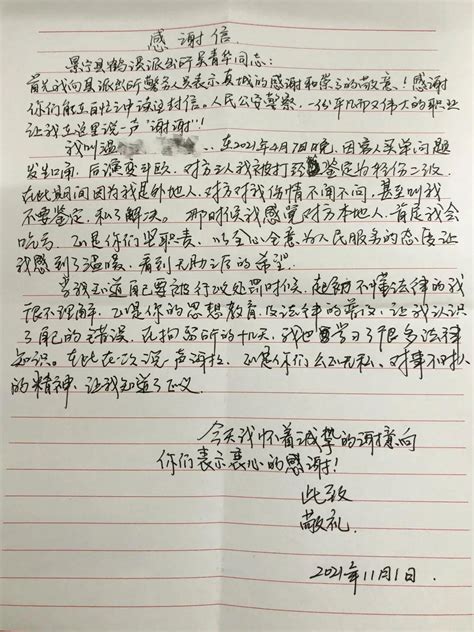 感谢信
景宁县鹤溪派出所吴青华同志:
首先我向县派出所警务人员表示真诚的感谢和崇高的敬意!感谢
你们能在百忙之中读这封信。人民公安警察,一份平凡而又伟大的职业
让我在这里说一声"谢谢"!
我叫温 在2021年4月7日晚,因客人买单问题
发生口角,后演变斗殴,对方三人我被打 鉴定为轻伤二级,
在此期间因为我是外地人,对方对我伤情不闻不问,甚至叫我
不要鉴定,私了解决。那时候我感觉对方本地人,肯定我会
吃亏,正是你们坐职责,以全心全意为人民服务的态度让
我感到了温暖,看到无助之后的希望。
当我知道自己要被行政处罚时候,起初不懂法律的我
很不理解,正是你的思想教育及法律的普及,让我认识
了自己的错误,在拘留所的十几天,我也学习了很多法律
知识。在此在一次说一声谢谢,正是你们公正无私,对事不对人
的精神,让我知道了正义。
今天我怀着诚挚的谢意向
你们表示衷心的感谢!
此致
敬礼.
2021年11月1日.